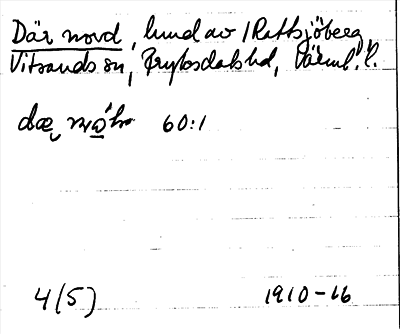 Där nord, lund av /Rattsjöberg,
Vitsands sn, Fryksdals hd, Värml. l.
60:1
4(5) 1910-16